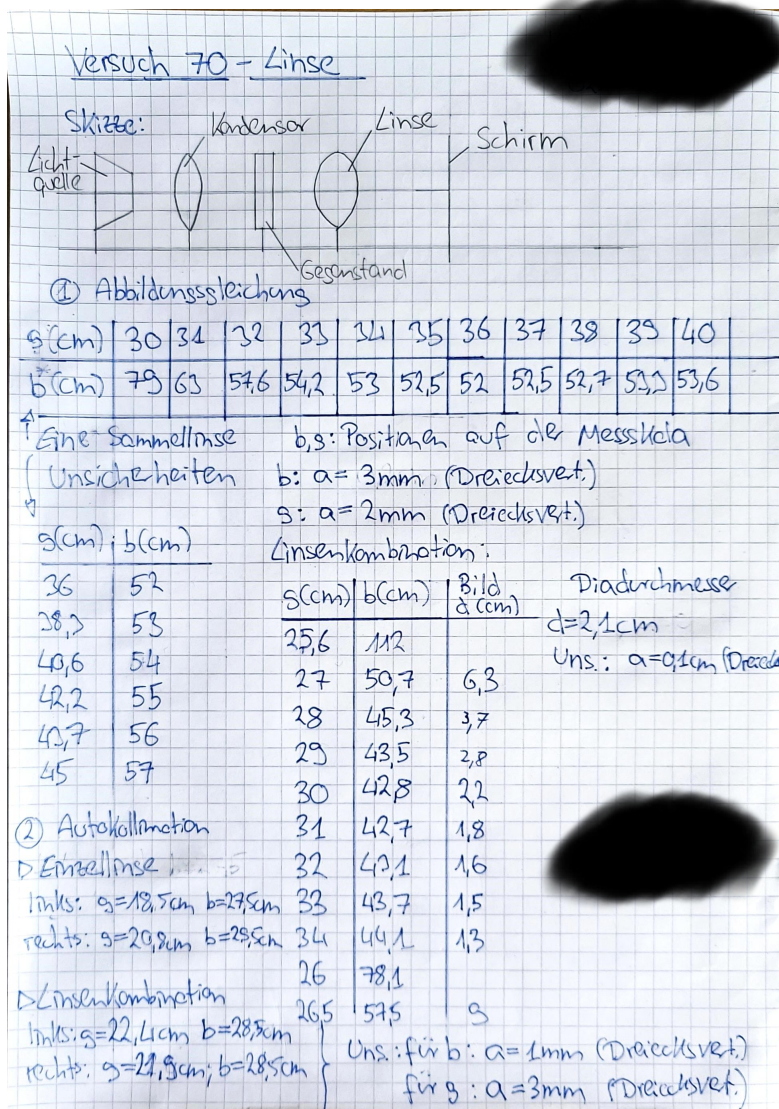 Versuch 70 - Linse
Skizze:
Kondensor
Linse
Schirm
Licht-
quelle
Gegenstand
① Abbildungsgleichung
g(cm) 30 31 32 33 34 35 36 37 38 39 40
b(cm) 79 63 57,6 54,2 53 52,5 52 52,5 52,7 53,6
Eine Sammellinse
b,g: Positionen auf der Messskala
Unsicherheiten
b: a = 3mm (Dreiecksvert.)
g: a = 2mm (Dreiecksvert.)
g(cm) b(cm)
36 52
38,3 53
40,6 54
42,2 55
43,7 56
45 57
Linsenkombination:
g(cm) b(cm) Bild d (cm)
25,6 112
27 50,7 6,3
28 45,3 3,7
29 43,5 2,8
30 42,8 2,2
31 42,7 1,8
32 43,1 1,6
33 43,7 1,5
34 44,1 1,3
26 78,1
26,5 57,5 9
Diadurchmesser
d=2,1cm
Uns.: a=0,1cm
② Autokollimation
▷ Einzellinse
links: g=18,5cm b=27,5cm
rechts: g=20,8cm b=29,5cm
▷ Linsenkombination
links: g=22,4cm b=28,5cm
rechts: g=21,9cm; b=28,5cm
Uns.: für b: a = 1mm (Dreiecksvert.)
für g: a = 3mm (Dreiecksvert.)